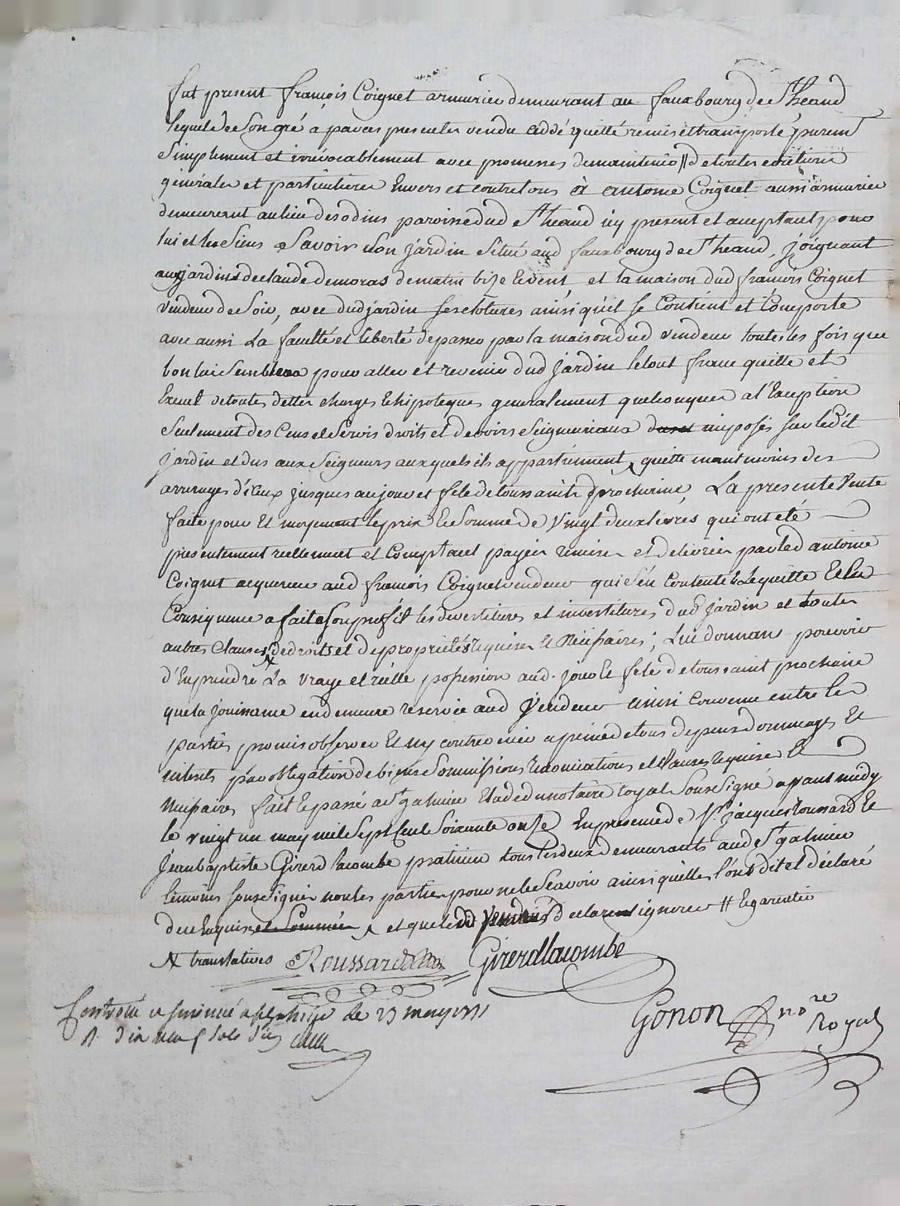 fut present françois Coignet armurier demeurant au fauxbourg de St heand
lequel de son gré a par ces presentes vendu ceddé quitté remis et transporté purem.t
simplement et irrévocablement avec promesses de maintenir // de toutes evictions
générales et particulieres Envers et contre tous à antoine Coignet aussi armurier
demeurant au lieu des odins paroisse dud St heand icy present et acceptant pour
lui et les siens a Savoir Son jardin situé aud fauxbourg de St heand, joignant
aux jardins de claude demoras de matin bize le vent et la maison dud françois Coignet
vendeur de Soir, avec dud jardin ses clotures ainsi qu'il se Contient et Comporte
avec aussi La faculté et liberté de passer par la maison dud vendeur toutes les fois que
bon lui Semblera pour aller et revenir dud jardin le tout franc quitte et
Exemt de toutes dettes charges & hipoteques generalement quelconques a l'Exception
Seulement des Cens et Servis droits et devoirs Seigneuriaux imposés sur le dit
jardin et dus aux Seigneurs auxquels ils appartiennent, quitte neantmoins des
arrerages d'iceux jusques au jour et fete de toussaints prochaine, La presente Vente
faite pour Et moyenant le prix & Somme de Vingt deux livres qui ont été
presentement reellement et Comptant payée remise et delivrée par led antoine
Coignet acquereur aud françois Coignet vendeur qui s'en Contente & le quitte Et En
Consequence a fait a son profit les devestitures et investitures dud jardin et toutes
autres Clauses de droits et de proprietés requises & Necessaires; Lui donnant pouvoir
d'En prendre La vraye et réelle possession aud. jour & fete de toussaint prochaine
que la jouissance en demeure reservée aud Vendeur ainsi convenu entre les
parties promis observer Et n'y contrevenir a peine de tous depens dommages Et
interets par obligation de biens Sommissions renonciations et Clauses requises &
necessaires fait & passé a St galmier Etude du notaire royal Soussigné avant midy
le vingt un may mil Sept Cent Soixante onze En presence de Sr. jacques roussard &
jean baptiste Girerd lacombe praticien tous les deux demeurants aud St galmier
temoins Soussignés non les parties pour ne le Scavoir ainsi qu'elles l'ont dit et déclaré
de ce Enquis et Sommées et que led Vendeur declarent ignorer // & garentie
translatives Roussard Girerdlacombe
Controllé a le 23 may 1771
R. dix neuf sols six
Gonon nore Royal